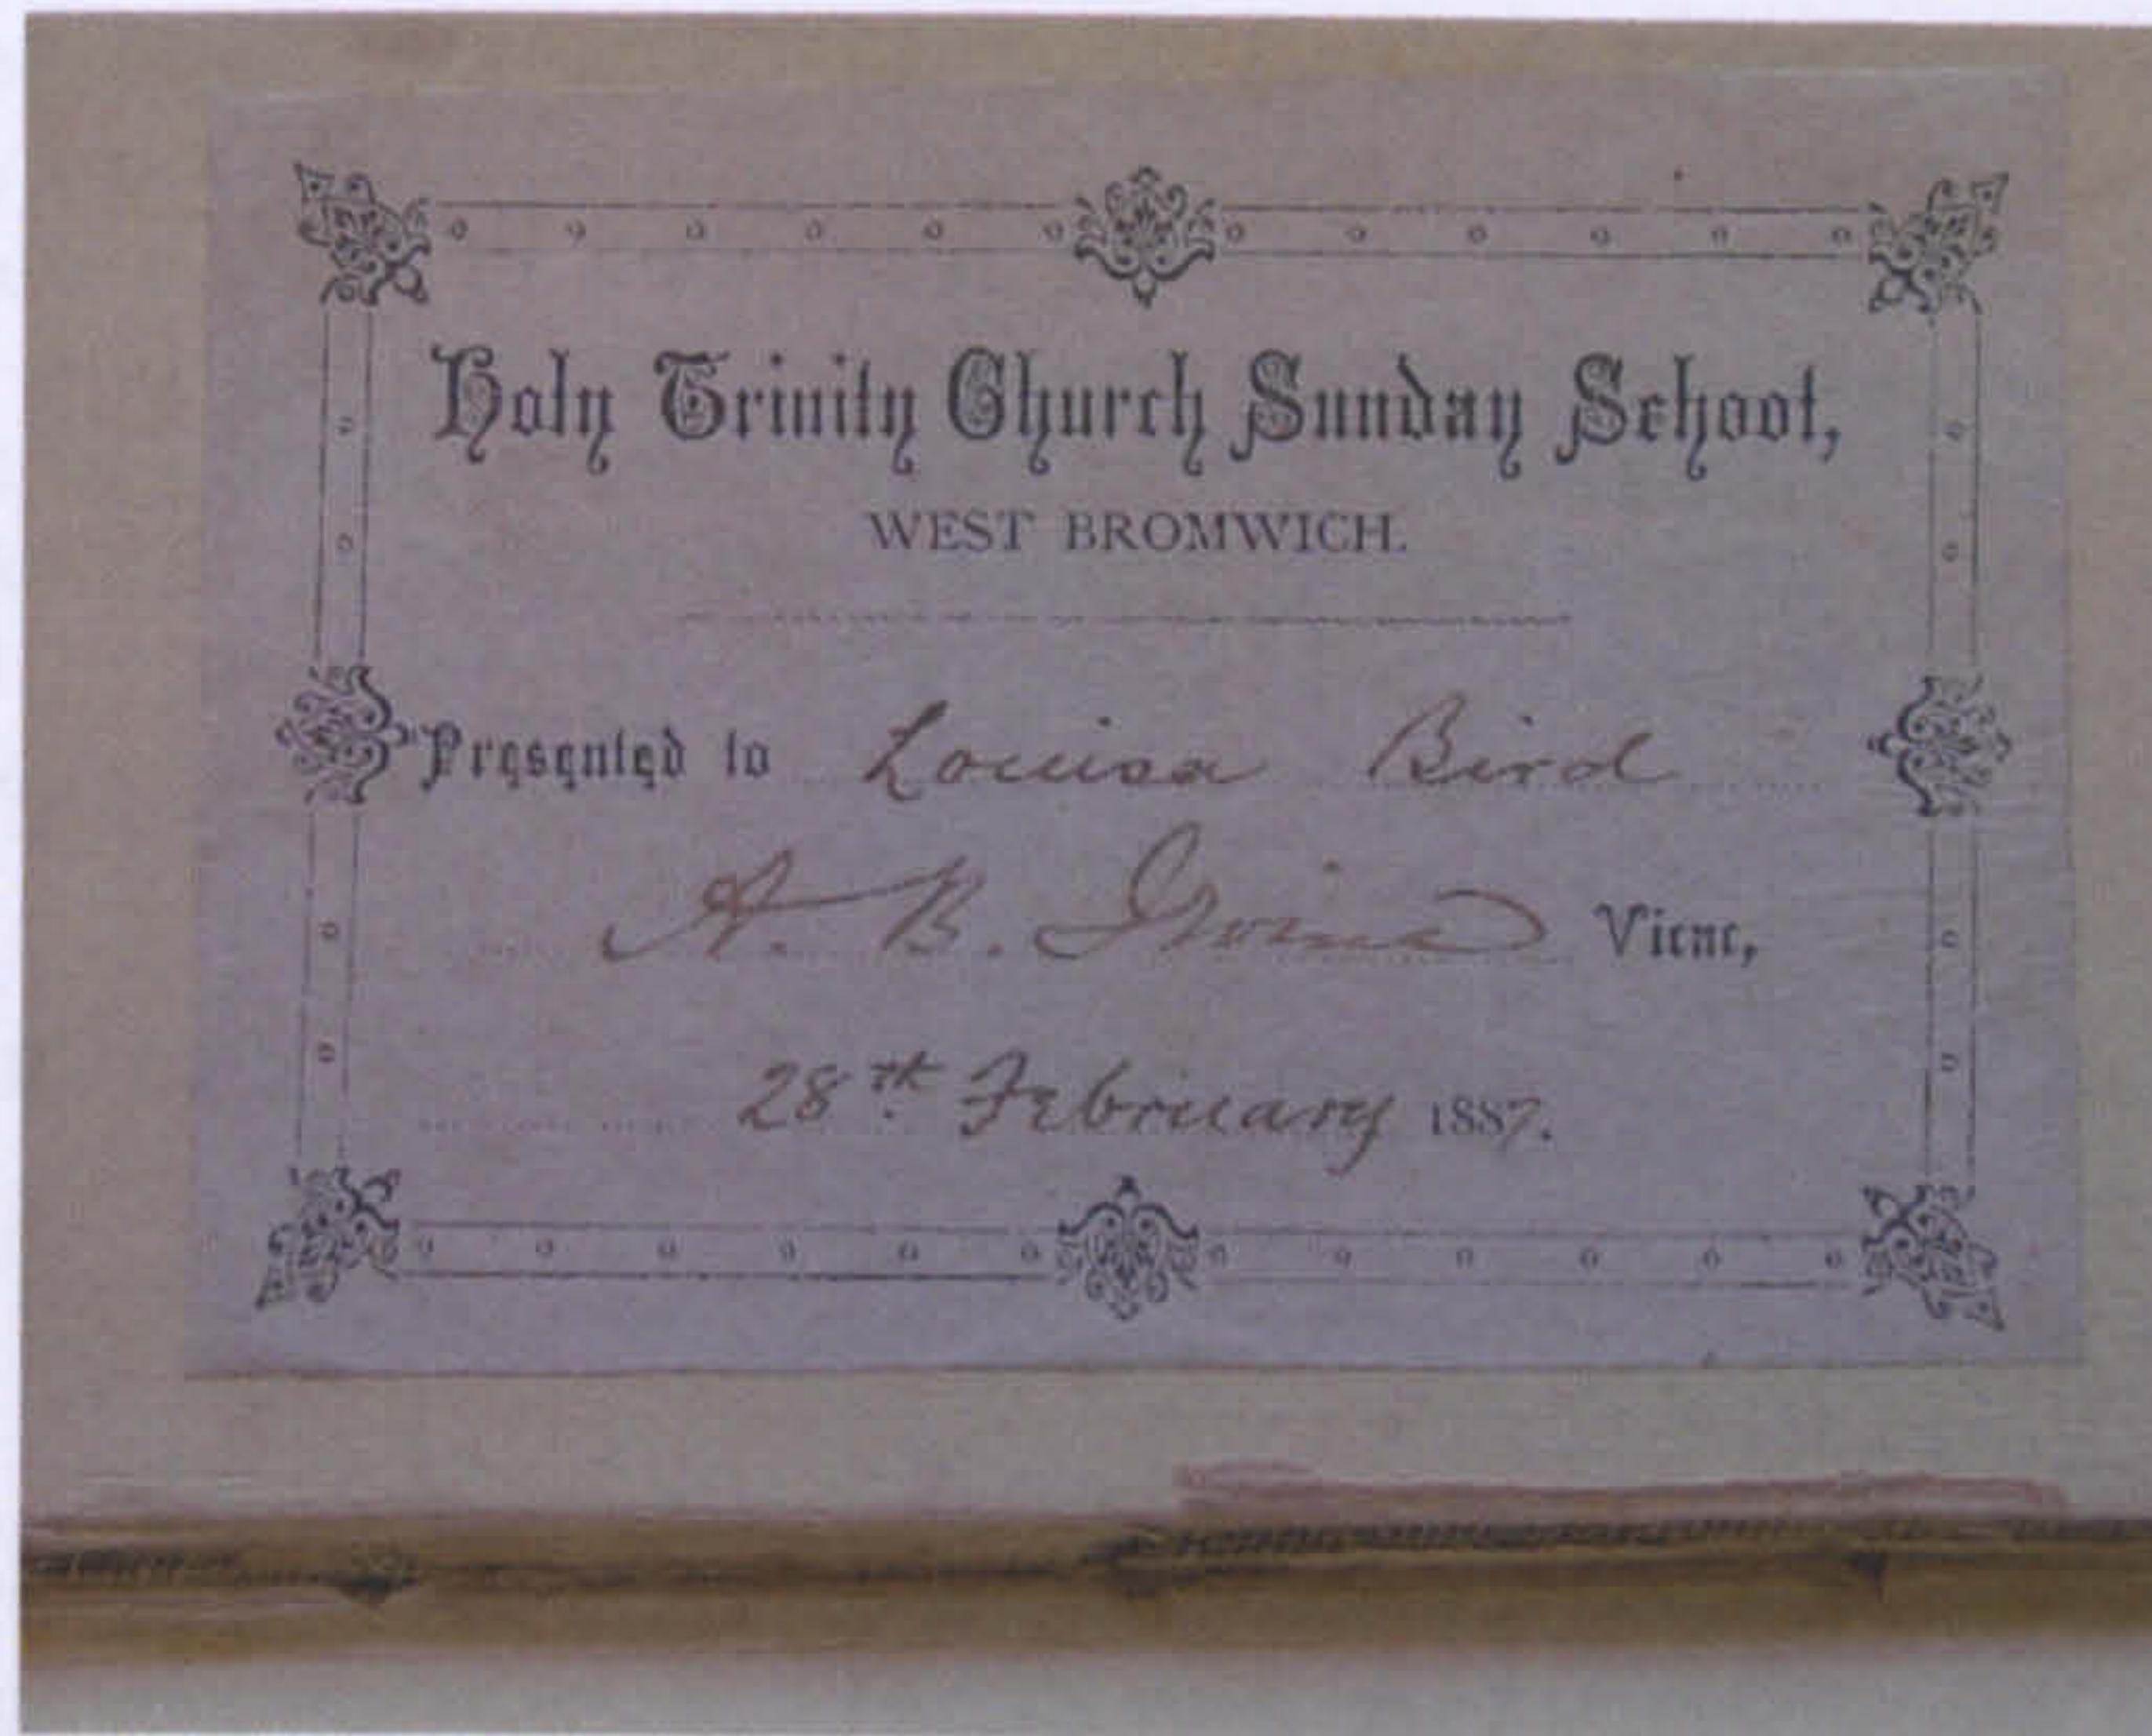 Holy Trinity Church Sunday School,
WEST BROMWICH.
Presented to Louisa Bird
A. B. Irvine Vicar,
28th February 1887.